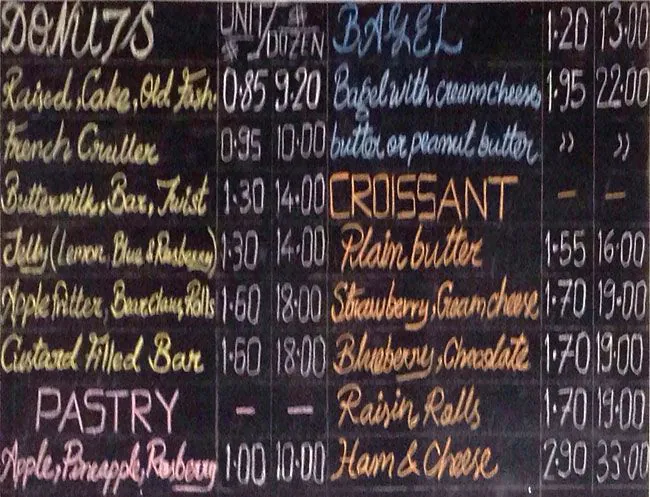 DONUTS UNIT/$ $/DOZEN
Raised, Cake, Old Fash. 0.85 9.20
French Cruller 0.95 10.00
Buttermilk, Bar, Twist 1.30 14.00
Jelly (Lemon, Blue & Rasberry) 1.30 14.00
Apple fritter, Bearclaw, Rolls 1.60 18.00
Custard Filled Bar 1.60 18.00
PASTRY - -
Apple, Pineapple, Rasberry 1.00 10.00
BAGEL 1.20 13.00
Bagel with cream cheese, 1.95 22.00
butter or peanut butter " "
CROISSANT - -
Plain butter 1.55 16.00
Strawberry, Cream cheese 1.70 19.00
Blueberry, Chocolate 1.70 19.00
Raisin Rolls 1.70 19.00
Ham & Cheese 2.90 33.00